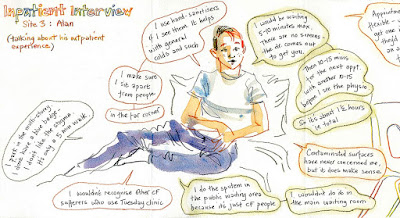 Inpatient Interview
Site 3: Alan
(talking about his outpatient
experience)
I use hand-sanitizers
if I see them. It helps
with general
colds and such
I would be waiting
5-10 minutes max.
There are no nurses -
the dr. comes out
to get you.
Appointments
flexible -
get one
I make sure
I sit apart
from people
in the far corner
10-15 mins
for the next appt.
with another 10-15
before I see the physio
So it's about 1½ hours
in total
I park in the multi-storey
I don't have a blue badge -
don't like the stigma
it's only a 5 min walk
Contaminated surfaces
have never concerned me,
but it does make sense.
I wouldn't recognise other cf
sufferers who use Tuesday clinic
I do the system in
the public waiting area
because it's just cf people
I wouldn't do so in
the main waiting room